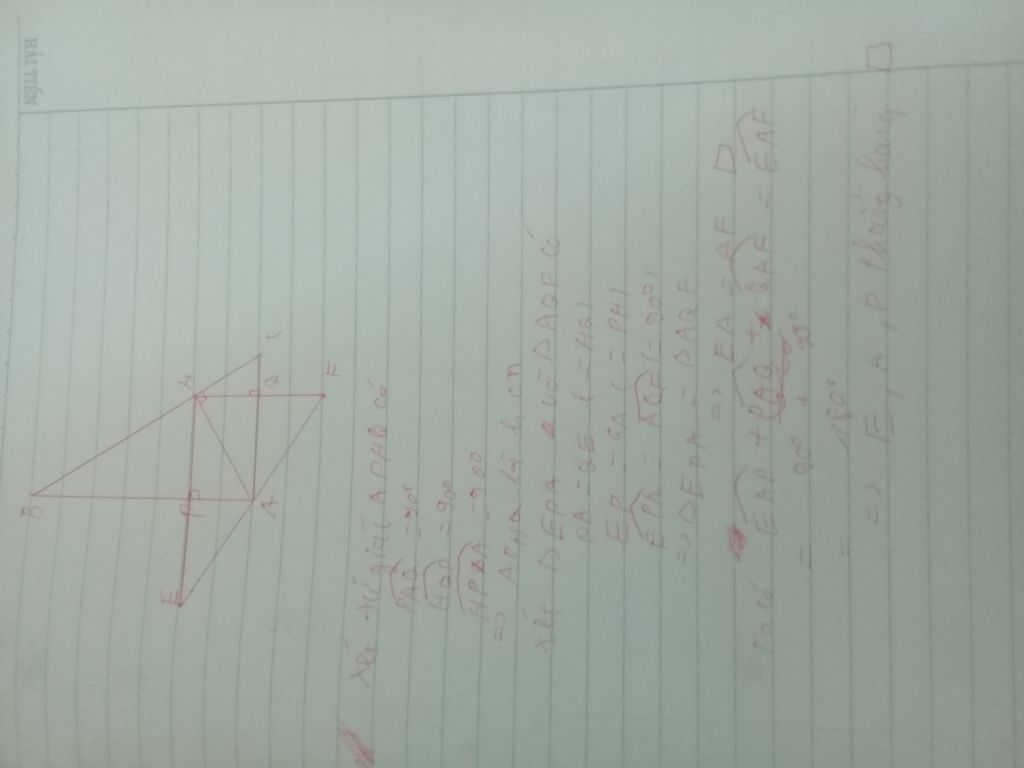 HẢI TIẾN
B
E
P
H
A
Q
C
F
Xét tứ giác APAB có
PAQ = 90°
HQA = 90°
HPA = 90°
=> APHQ là hcn
Xét DEPA và DAQF có
PA = QF (= AQ)
EP = QA (= PH)
EPA = AQF (= 90°)
=> DEPA = DAQF
=> EA = AF □
Ta có EAP + PAQ + QAF = EAF
= 90° + 90°
= 180°
=> E, A, P thẳng hàng □